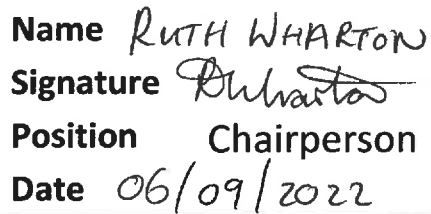 Name RUTH WHARTON
Signature RWharton
Position Chairperson
Date 06/09/2022